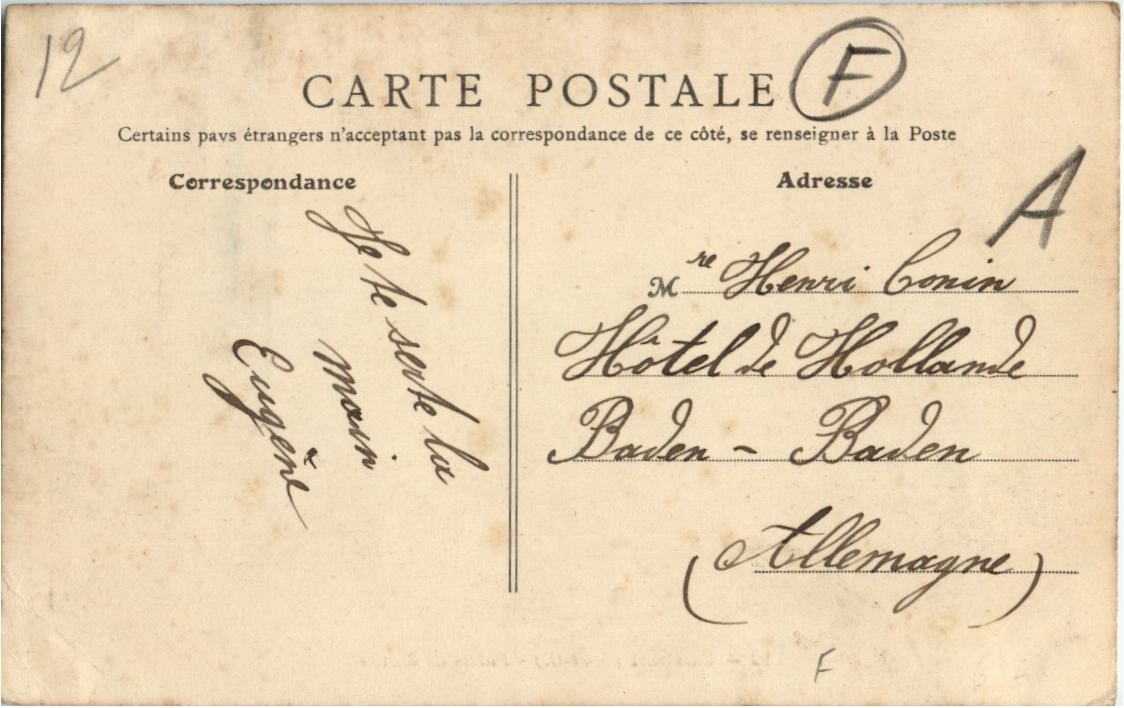 12
CARTE POSTALE F
Certains pays étrangers n'acceptant pas la correspondance de ce côté, se renseigner à la Poste
Correspondance
Je te serre la
main
Eugène
Adresse
A
Mre Henri Conin
Hôtel de Hollande
Baden - Baden
(Allemagne)
F